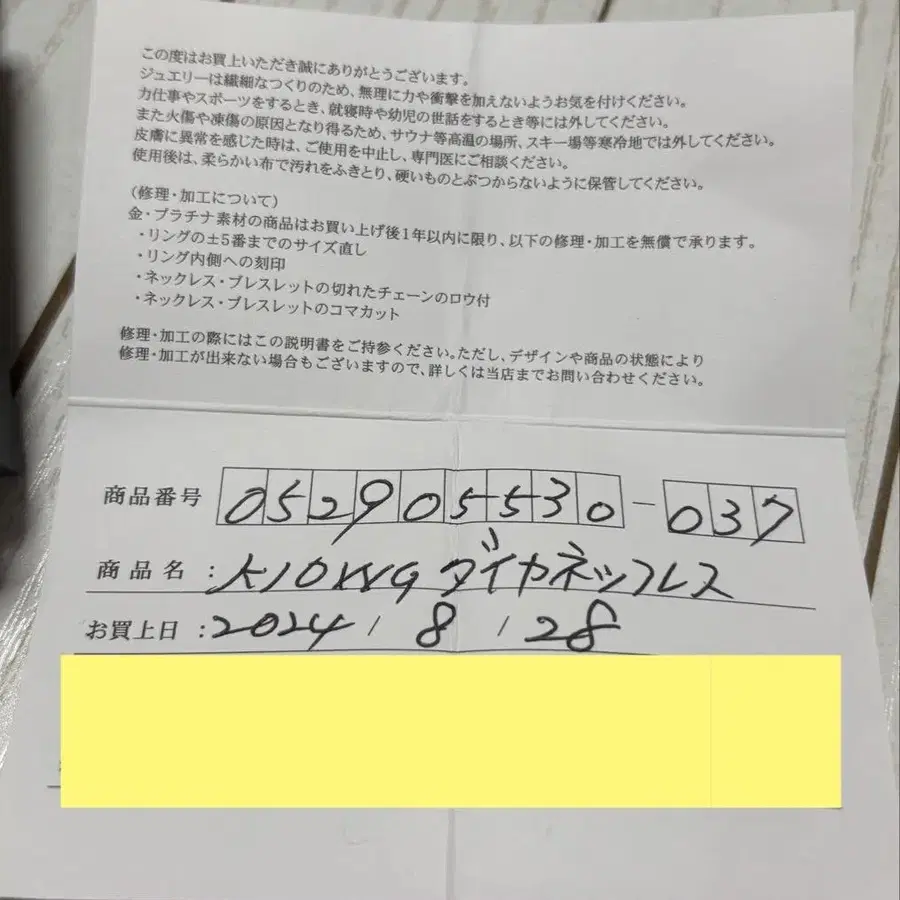 この度はお買上いただき誠にありがとうございます。
ジュエリーは繊細なつくりのため、無理に力や衝撃を加えないようお気を付けください。
力仕事やスポーツをするとき、就寝時や幼児の世話をするとき等には外してください。
また火傷や凍傷の原因となり得るため、サウナ等高温の場所、スキー場等寒冷地では外してください。
皮膚に異常を感じた時は、ご使用を中止し、専門医にご相談ください。
使用後は、柔らかい布で汚れをふきとり、硬いものとぶつからないように保管してください。
（修理・加工について）
金・プラチナ素材の商品はお買い上げ後1年以内に限り、以下の修理・加工を無償で承ります。
・リングの±5番までのサイズ直し
・リング内側への刻印
・ネックレス・ブレスレットの切れたチェーンのロウ付
・ネックレス・ブレスレットのコマカット
修理・加工の際にはこの説明書をご持参ください。ただし、デザインや商品の状態により
修理・加工が出来ない場合もございますので、詳しくは当店までお問い合わせください。
商品番号 052905530-037
商品名：K10WGダイヤネックレス
お買上日：2024/8/28